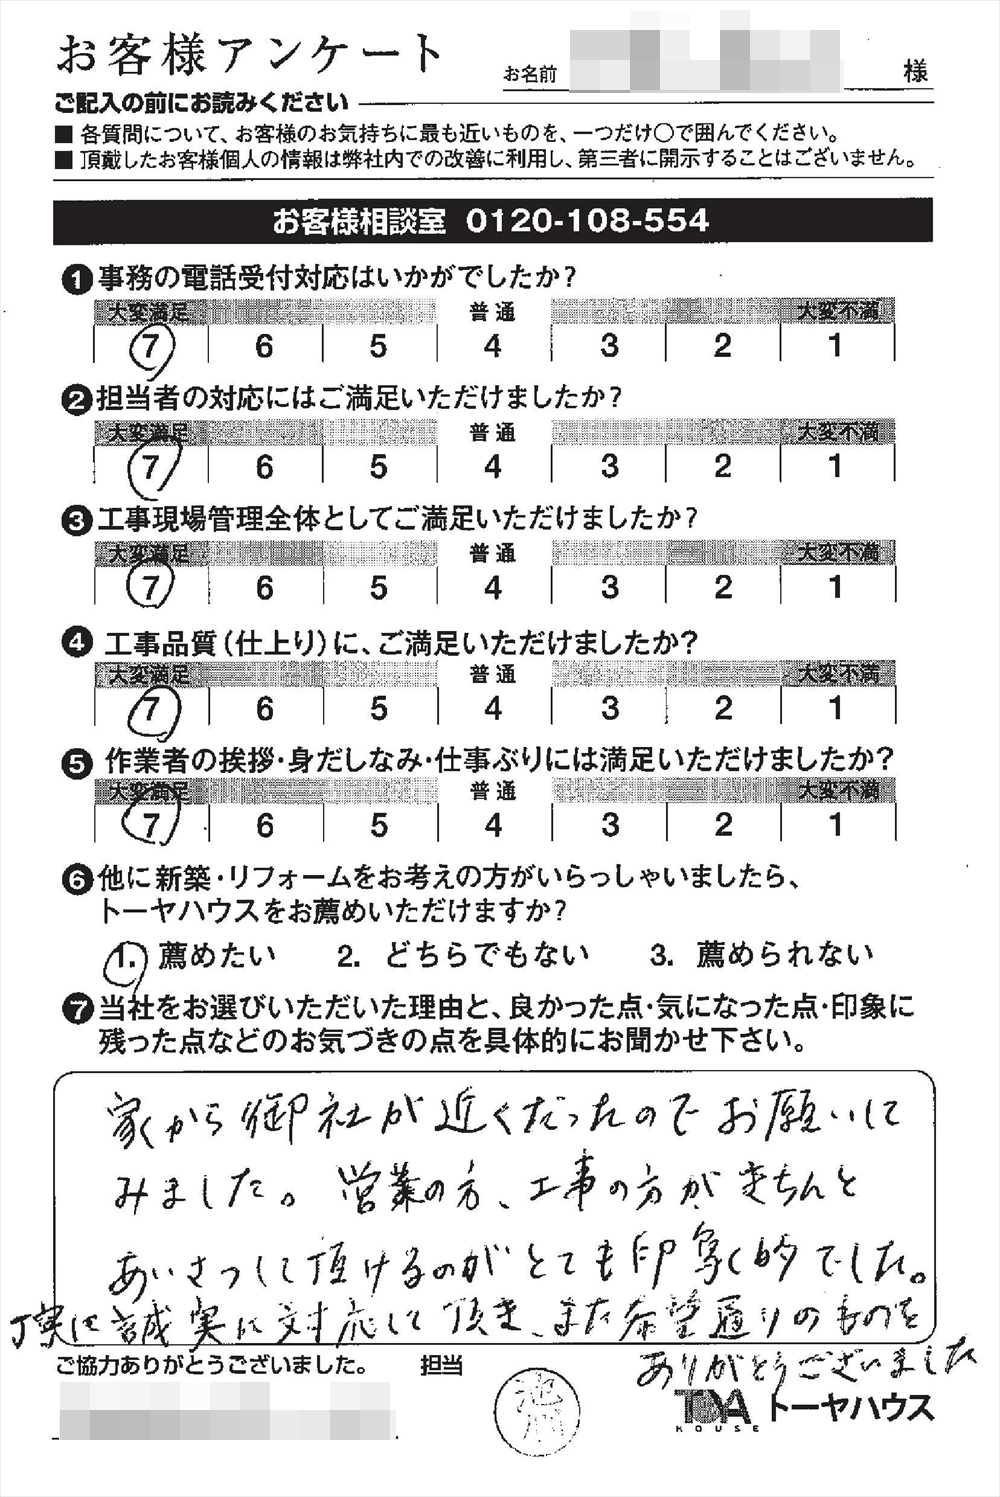 お客様アンケート
お名前 様
ご記入の前にお読みください
■ 各質問について、お客様のお気持ちに最も近いものを、一つだけ○で囲んでください。
■ 頂戴したお客様個人の情報は弊社内での改善に利用し、第三者に開示することはございません。
お客様相談室 0120-108-554
❶事務の電話受付対応はいかがでしたか?
大変満足 普通 大変不満
7 6 5 4 3 2 1
❷担当者の対応にはご満足いただけましたか?
大変満足 普通 大変不満
7 6 5 4 3 2 1
❸工事現場管理全体としてご満足いただけましたか?
大変満足 普通 大変不満
7 6 5 4 3 2 1
❹ 工事品質(仕上り)に、ご満足いただけましたか?
大変満足 普通 大変不満
7 6 5 4 3 2 1
❺ 作業者の挨拶・身だしなみ・仕事ぶりには満足いただけましたか?
大変満足 普通 大変不満
7 6 5 4 3 2 1
❻他に新築・リフォームをお考えの方がいらっしゃいましたら、
トーヤハウスをお薦めいただけますか?
1. 薦めたい 2. どちらでもない 3. 薦められない
❼当社をお選びいただいた理由と、良かった点・気になった点・印象に
残った点などのお気づきの点を具体的にお聞かせ下さい。
家から御社が近くだったのでお願いして
みました。営業の方、工事の方がきちんと
あいさつして頂けるのがとても印象的でした。
丁寧に誠実に対応して頂き、また希望通りのものを
ありがとうございました
ご協力ありがとうございました。 担当
TOYA HOUSE トーヤハウス